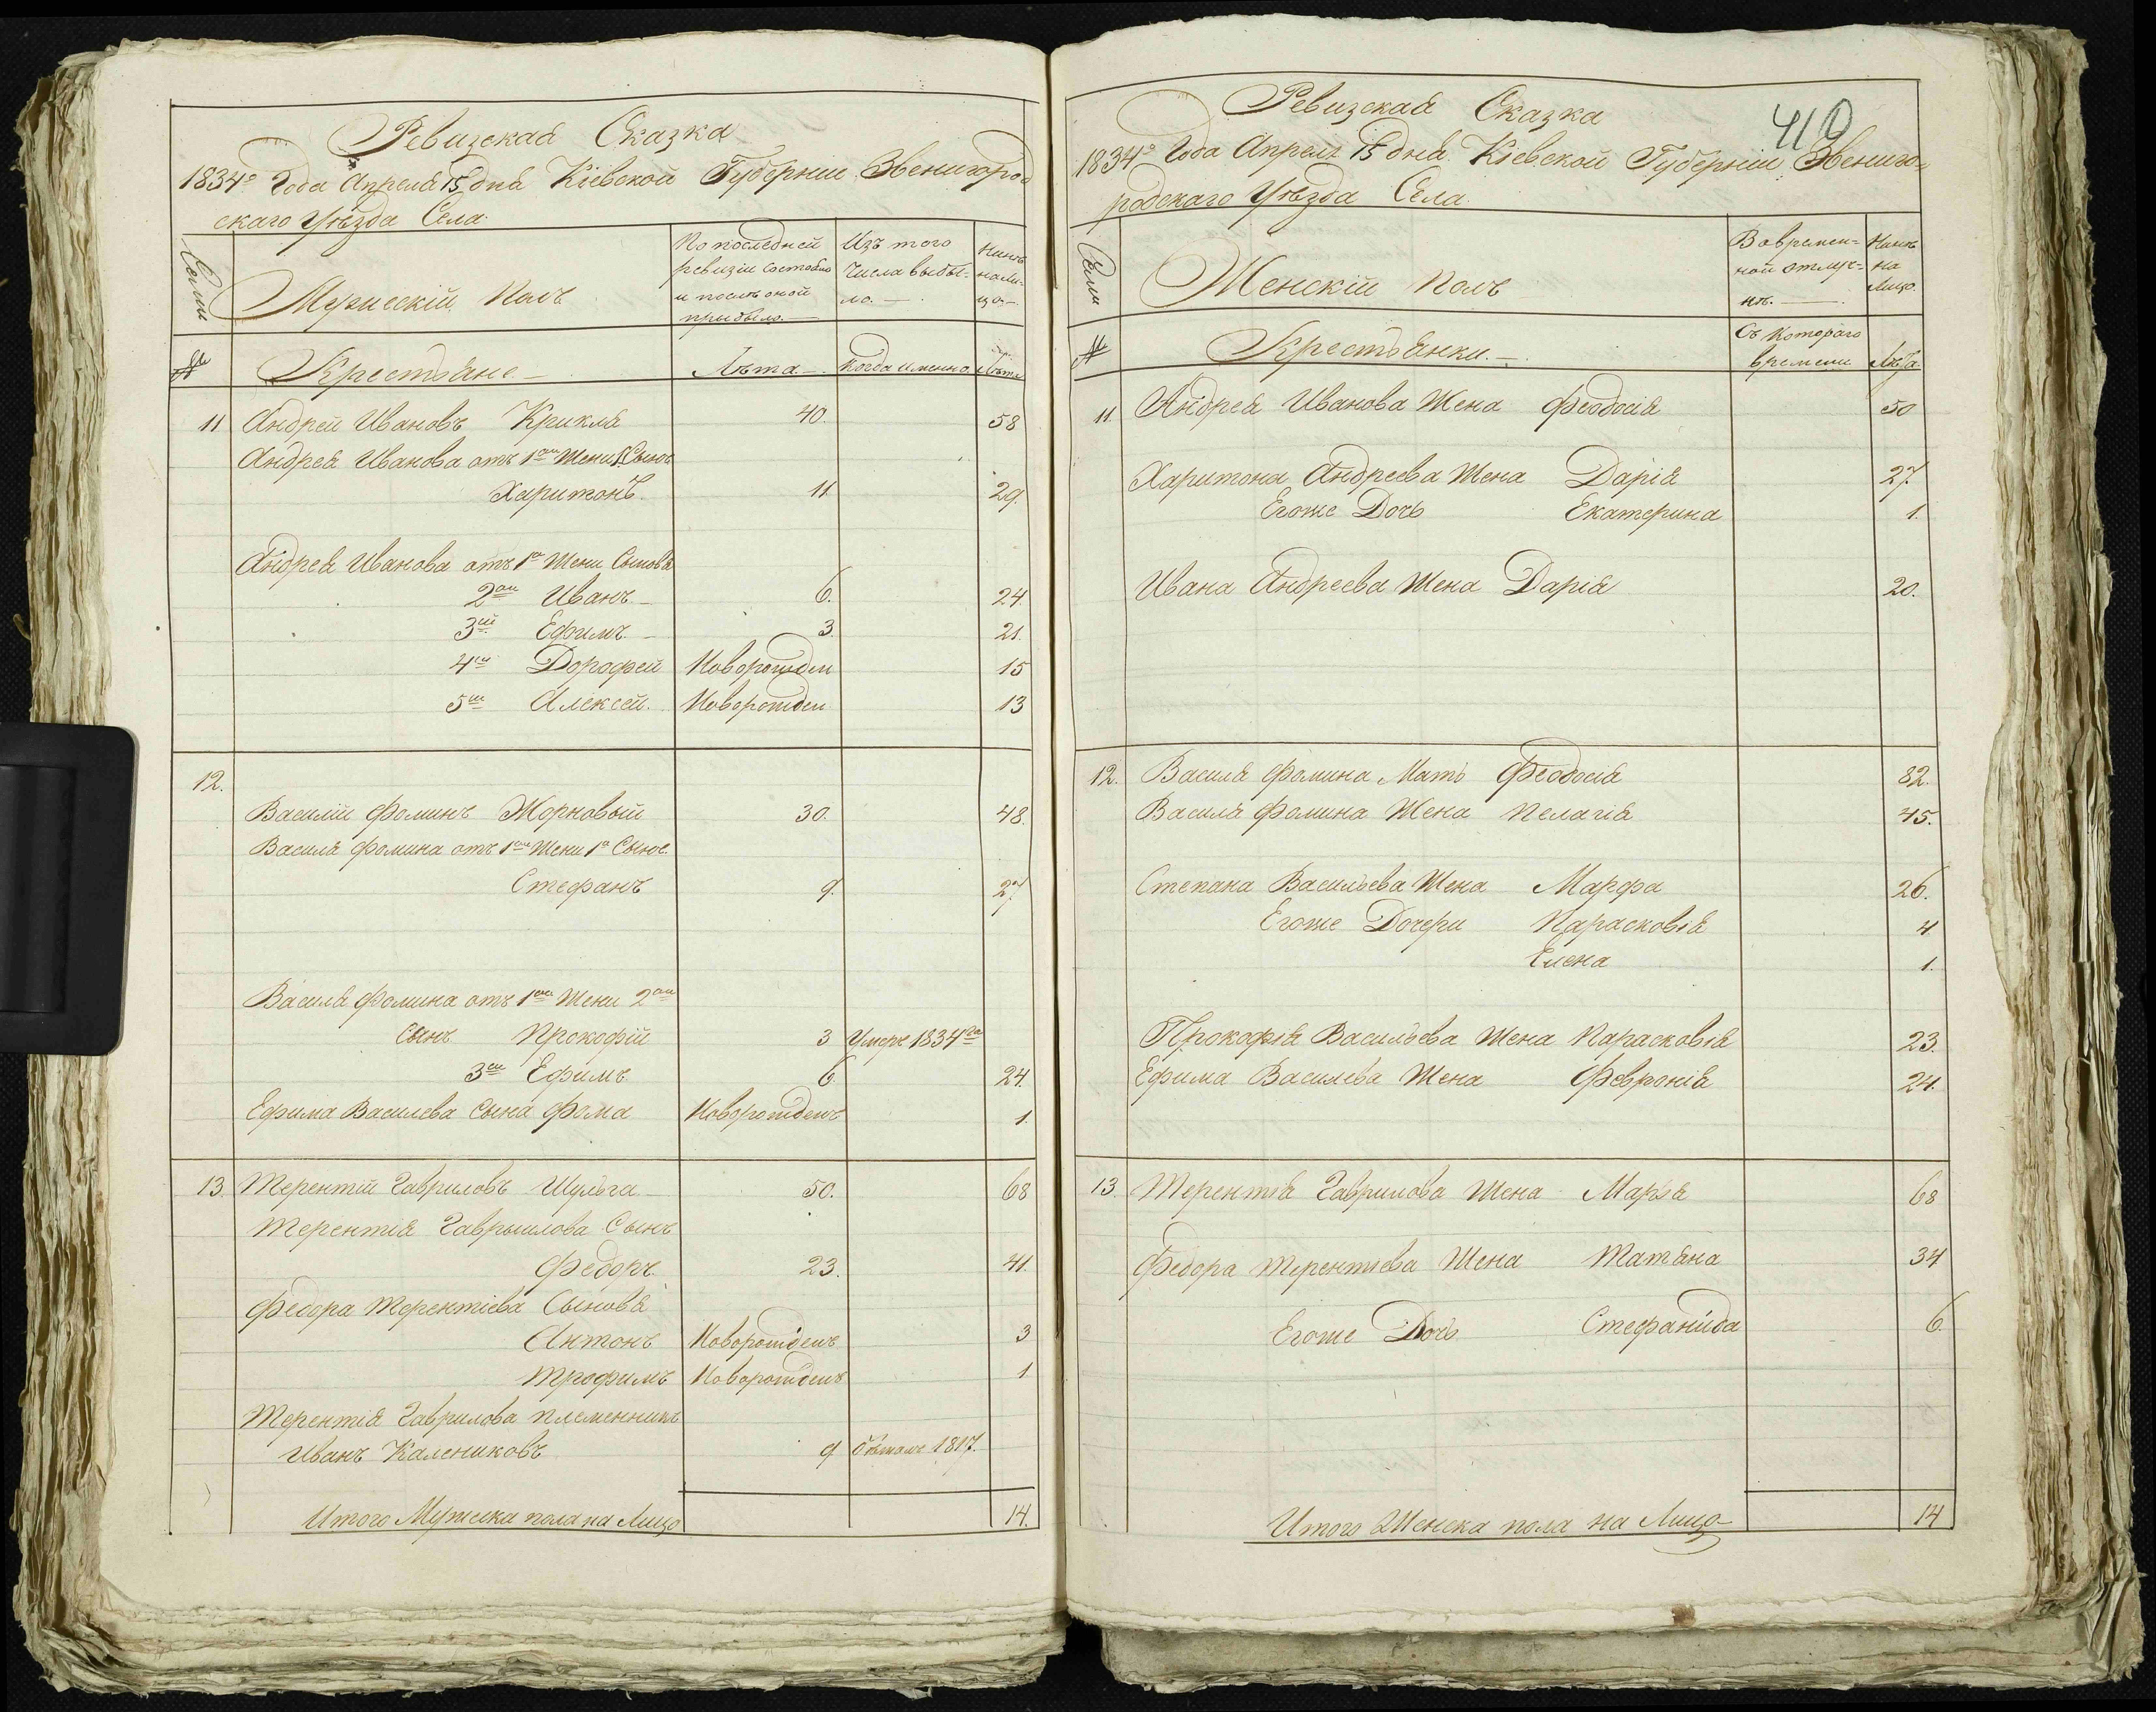 Ревизская Сказка
1834го Года Апреля 15 дня Кіевской Губерніи Звенигород
скаго Уѣзда Села
Семьи
Мужескій Полъ
По последней
ревизіи состояло
и послѣ оной
прибыло.—
Изъ того
числа выбы-
ло.—
Нынѣ
на ли-
цо.—
№
Крестьяне—
Лѣта—.
Когда именно
Лѣта
11 Андрей Ивановъ Крикля 40. 58
Андрея Иванова отъ 1ой Жени 1 Сынъ
Харитонъ. 11 29.
Андрея Иванова отъ 1й Жени Сыновя
2ой Иванъ— 6. 24.
3ій Ефимъ— 3. 21.
4й Дорофей Новорожден 15
5й Алексей. Новорожден 13
12.
Василій Фоминъ Жорновый 30. 48.
Василя Фомина отъ 1ой Жени 1й Сынъ.
Стефанъ 9. 27.
Василя Фомина отъ 1ой Жени 2ой
Сынъ Прокофій 3 Умеръ 1834го
3й Ефимъ 6. 24.
Ефима Василева Сына Фома Новорожденъ 1.
13. Терентій Гавриловъ Шульга— 50. 68
Терентія Гаврыилова Сынъ
Федоръ. 23. 41.
Федора Терентіева Сыновя
Антонъ Новорожденъ 3
Трофимъ Новорожденъ 1
Терентія Гаврилова племенникъ
Иванъ Калениковъ 9 бѣжалъ 1817.
Итого Мужеска пола на Лицо 14.
410
Ревизская Сказка
1834го Года Апреля 15 дня Кіевской Губерніи Звениго-
родскаго Уѣзда Села.
Семьи
Женскій Полъ
Во времен-
ной отлуч-
кѣ.—
Нынѣ
на
Лицо.
№
Крестьянки.—
Съ Котораго
времени
Лѣта.
11. Андрея Иванова Жена Феодосія 50
Харитона Андреева Жена Дарія 27.
Егоже Дочь Екатерина 1.
Ивана Андреева Жена Дарія 20.
12. Василя Фомина Мать Феодосія 82.
Василя Фомина Жена Пелагія 45.
Степана Васильева Жена Марфа 26.
Егоже Дочери Парасковія 4.
Елена 1.
Прокофія Васильева Жена Парасковія 23.
Ефима Василева Жена Февронія 24.
13. Терентія Гаврилова Жена Марья 68
Федора Терентіева Жена Татяна 34
Егоже Дочь Стефанида 6.
Итого Женска пола на Лицо 14